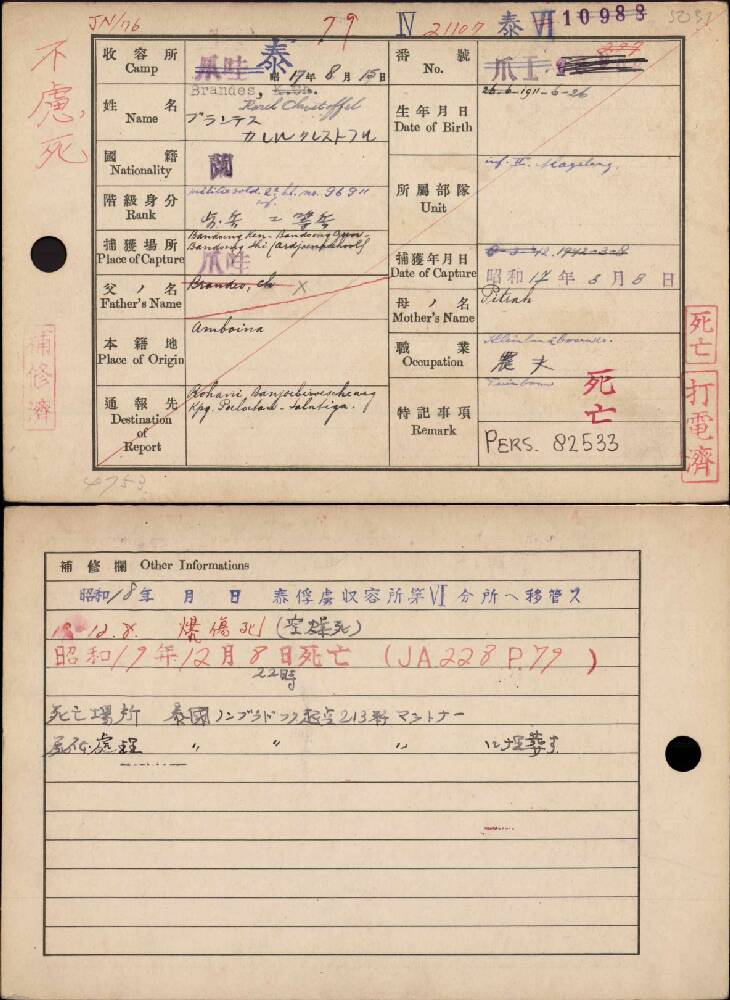 JN/76 79 IV 21107 泰 VI 10983
不慮死
收容所 Camp 爪哇 泰 昭 17年 8月 15日
番號 No. 爪 I
姓名 Name Brandes,
Karel Christoffel
ブランデス
カレル クレストフル
生年月日 Date of Birth 26-6-1911-6-26
國籍 Nationality 蘭
所屬部隊 Unit inf. II. Magelang.
階級身分 Rank militiesold. 2e kl. no. 96911
inf.
歩兵 二等兵
捕獲場所 Place of Capture Bandoeng Ken- Bandoeng
Bandoeng shi (Ardjunaschool)
爪哇
捕獲年月日 Date of Capture 8-3-'42. 1942-3-8
昭和 17年 3月 8日
父ノ名 Father's Name Brandes, ch X
母ノ名 Mother's Name Pitrah
本籍地 Place of Origin Amboina
職業 Occupation Kleinlandbouwer.
農夫
通報先 Destination of Report Rohani,
Kpg. Salatiga.
特記事項 Remark 死亡
PERS. 82533
補修濟
死亡
打電濟
4753
補修欄 Other Informations
昭和18年 月 日 泰俘虜収容所第VI分所ヘ移管ス
19.12.8. 爆傷死 (空爆死)
昭和19年12月8日死亡 (JA228 P.79)
22時
死亡場所 泰國ノンプラドック起点213粁 マンナー
〃 〃 〃 ニ埋葬ス